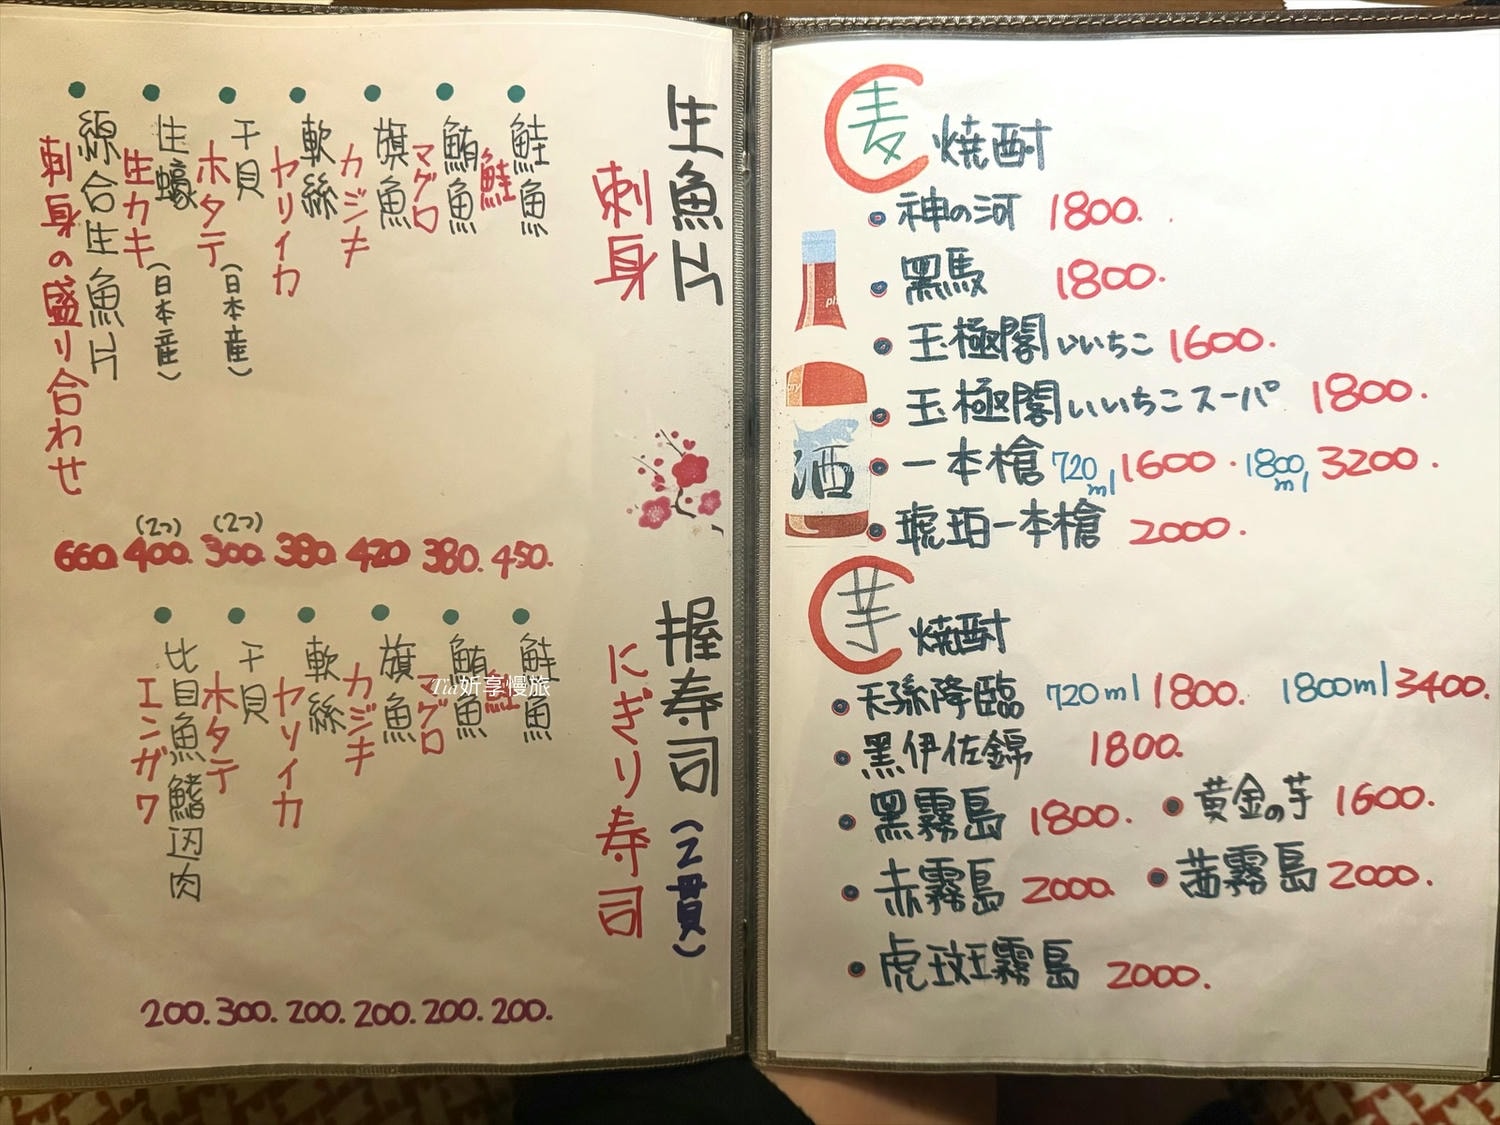 生魚片
刺身
鮭魚
鮭
450.
鮪魚
マグロ
380.
旗魚
カジキ
420
軟絲
ヤリイカ
380.
干貝
ホタテ(日本産)
(2つ)
300.
生蠔
生カキ(日本産)
(2つ)
400.
綜合生魚片
刺身の盛り合わせ
660.
握寿司
にぎり寿司
(2貫)
鮭魚
鮭
200.
鮪魚
マグロ
200.
旗魚
カジキ
200.
軟絲
ヤリイカ
200.
干貝
ホタテ
300.
比目魚鰭边肉
エンガワ
200.
Tia妡享慢旅
麦焼酎
神の河 1800.
黑馬 1800.
玉極閣いいちこ 1600.
玉極閣いいちこスーパ 1800.
一本槍 720ml 1600・1800ml 3200.
琥珀一本槍 2000.
酒
芋焼酎
天孫降臨 720ml 1800. 1800ml 3400.
黑伊佐錦 1800.
黑霧島 1800. 黄金の芋 1600.
赤霧島 2000. 茜霧島 2000.
虎斑霧島 2000.